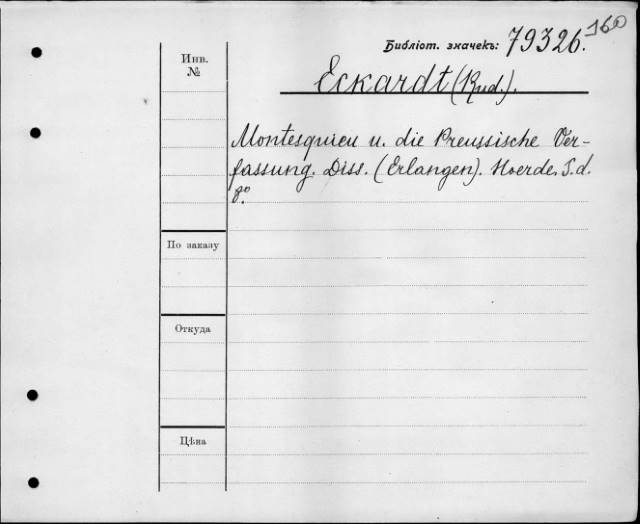 160
Библіот. значекъ: 79326.
Инв.
№
Eckardt (Rud.).
Montesquieu u. die Preussische Ver-
fassung. Diss. (Erlangen). Hoerde. S.d.
8°.
По заказу
Откуда
Цѣна